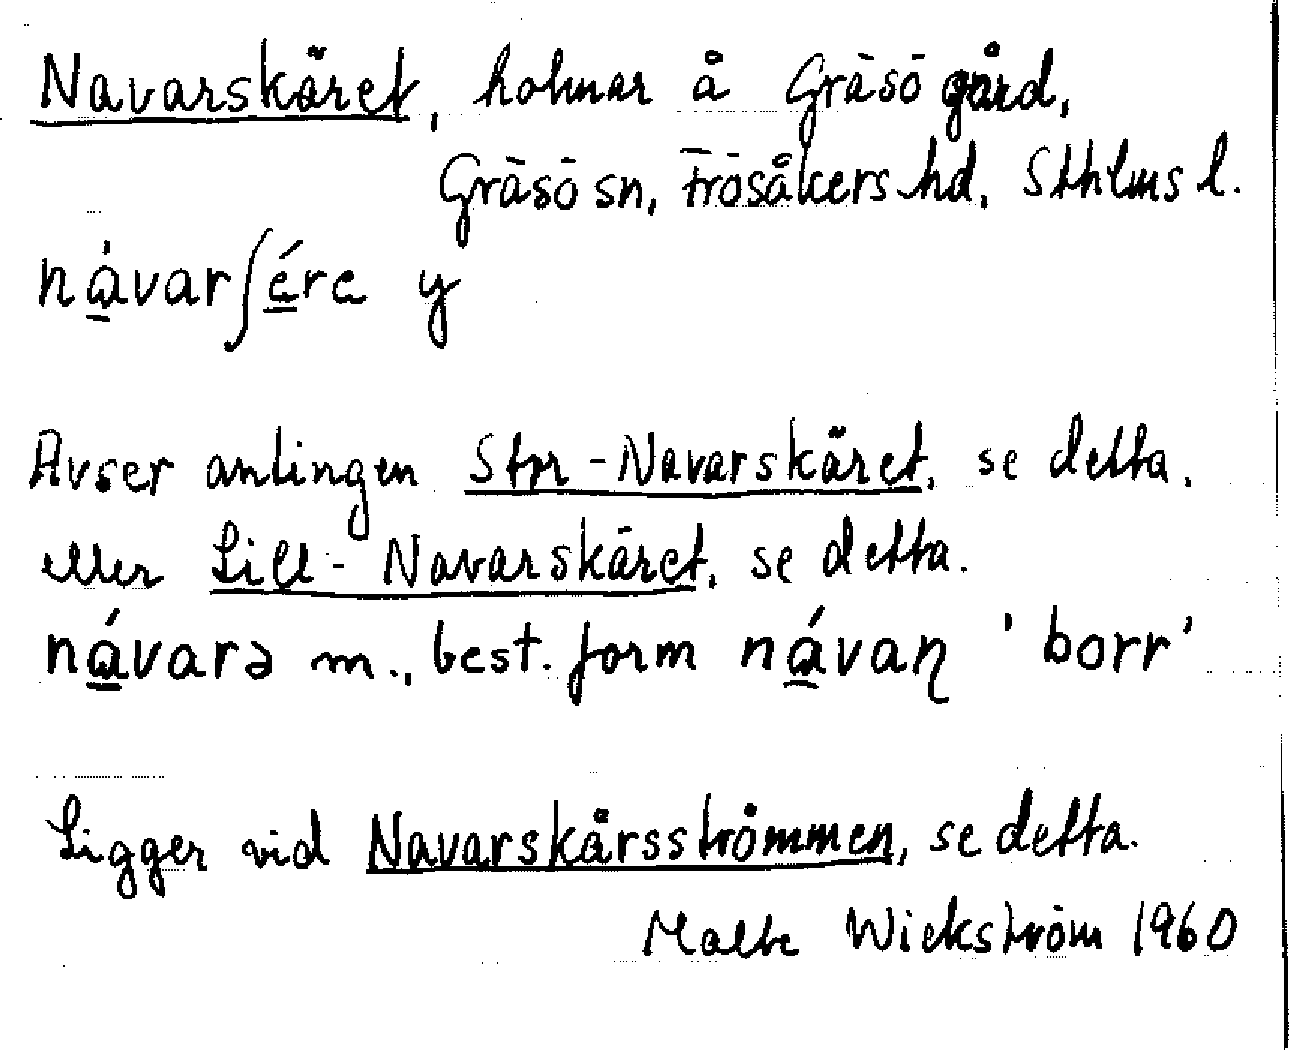 Navarskäret, holmar å Gräsö gård,
Gräsö sn, Frösåkers hd, Sthlms l.
návarʃére y
Avser antingen Stor-Navarskäret, se detta,
eller Lill-Navarskäret, se detta.
návarə m., best. form návaɳ 'borr'
Ligger vid Navarskärsströmmen, se detta.
Malte Wickström 1960